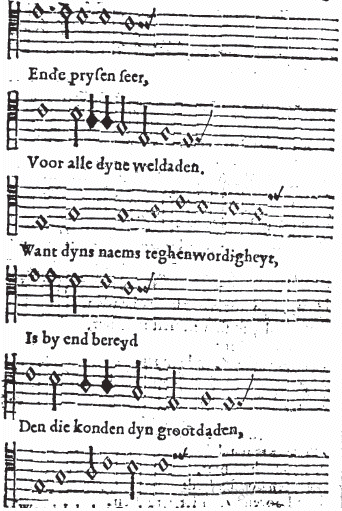 Ende prysen seer,
Voor alle dyne weldaden.
Want dyns naems teghenwordigheyt,
Is by end bereyd
Den die konden dyn grootdaden,